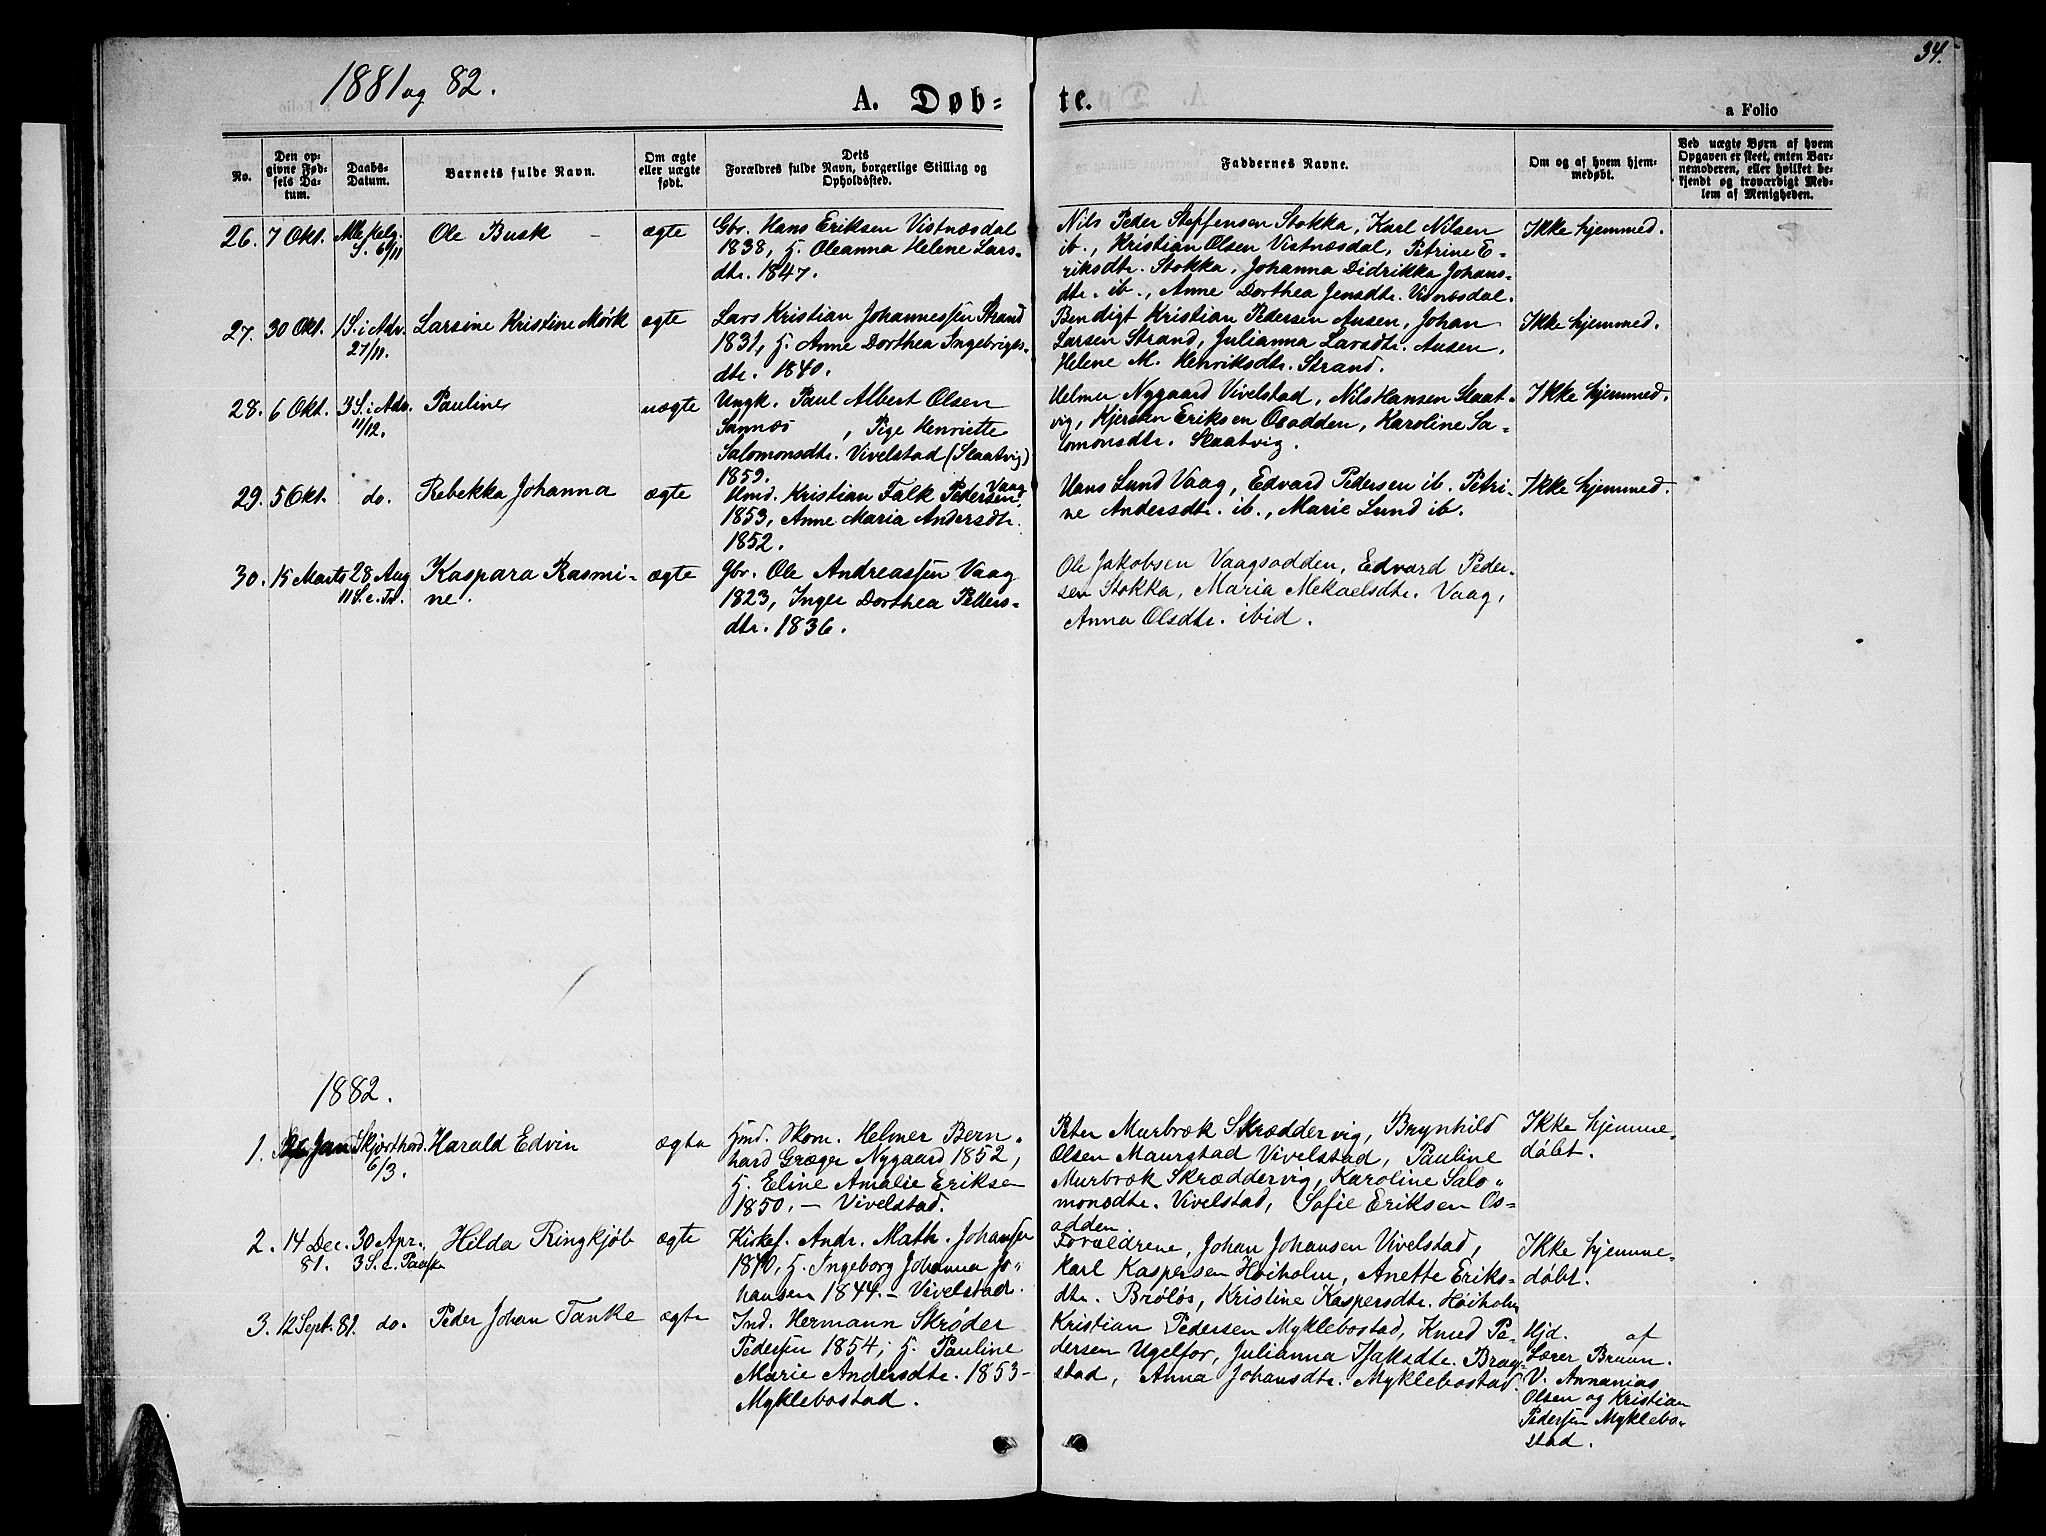 34.
1881 og 82.
A. Døb=
te.
a Folio
No.
Den op-
givne Fød-
sels Da-
tum.
Daabs-
Datum.
Barnets fulde Navn.
Om ægte
eller uægte
født.
Dets
Forældres fulde Navn, borgerlige Stilling og
Opholdssted.
Faddernes Navne.
Om og af hvem hjem-
medøbt.
Ved uægte Børn af hvem
Opgaven er skeet, enten Bar-
nemoderen, eller hvilket be-
kjendt og troværdigt Med-
lem af Menigheden.
26. 7 Okt. Alle helg. Ole Busk ægte
S. 6/11
Gbr. Hans Eriksen Vistnæsdal
1838, H. Oleanna Helene Lars-
dtr. 1847.
Nils Peder Steffensen Stokka, Karl Nilsen
ib., Kristian Olsen Vistnæsdal, Petrine E-
riksdtr. Stokka, Johanna Didrikka Johans-
dtr. ib., Anne Dorthea Jensdtr. Visnæsdal.
Ikke hjemmed.
27. 30 Okt. 1 S. i Adv. Larsine Kristine Mørk ægte
27/11.
Lars Kristian Johannessen Strand
1831, H. Anne Dorthea Ingebrigts-
dtr. 1840.
Bendigt Kristian Pedersen Ausen, Johan
Larsen Strand, Julianna Larsdtr. Ausen,
Helene M. Henriksdtr. Strand.
Ikke hjemmed.
28. 6 Okt. 3 S. i Adv. Pauline uægte
11/12.
Ungk. Paul Albert Olsen
Sannæs, Pige Henriette
Salomonsdtr. Vivelstad (Slaatvig)
1859.
Helmer Nygaard Vivelstad, Nils Hansen Slaat-
vig, Kjersten Eriksen Osodden, Karoline Sa-
lomonsdtr. Slaatvig.
Ikke hjemmed.
29. 5 Okt. do. Rebekka Johanna ægte
Vaag
Hmd. Kristian Falk Pedersen,
1853, Anne Maria Andersdtr.
1852.
Hans Lund Vaag, Edvard Pedersen ib. Petri-
ne Andersdtr. ib., Marie Lund ib.
Ikke hjemmed.
30. 15 Marts 28 Aug Kaspara Rasmi- ægte
11 S. e. Tr. ne.
Gbr. Ole Andreassen Vaag
1823, Inger Dorthea Petters-
dtr. 1836.
Ole Jakobsen Vaagsodden, Edvard Peder-
sen Stokka, Maria Mekaelsdtr. Vaag,
Anna Olsdtr. ibid.
1882.
1. Jan Skjørthord. Harald Edvin ægte
6/3.
Hmd. Skom. Helmer Bern-
hard Græger Nygaard 1852,
H. Eline Amalie Eriksen
1850. – Vivelstad.
Peter Murbræk Skræddervig, Brynhild
Olsen Maurstad Vivelstad, Pauline
Murbræk Skræddervig, Karoline Salo-
monsdtr. Vivelstad, Sofie Eriksen Os-
odden.
Ikke hjemme-
døbt.
2. 14 Dec. 30 Apr. Hilda Ringkjøb ægte
81. 3 S. e. Paaske
Kirkes. Andr. Math. Johansen
1840, H. Ingeborg Johanna Jo-
hansen 1844. – Vivelstad.
Forældrene, Johan Johansen Vivelstad,
Karl Kaspersen Høiholm, Anette Eriks-
dtr. Brøløs, Kristine Kaspersdtr. Høiholm
Ikke hjemme-
døbt.
3. 12 Sept. 81. do. Peder Johan Tanke ægte
Ind. Hermann Skrøder
Pedersen 1854, H. Pauline
Marie Andersdtr. 1853 –
Myklebostad.
Kristian Pedersen Myklebostad, Knud Pe-
dersen Ugelfor, Julianna Isaksdtr. Brag-
stad, Anna Johansdtr. Myklebostad.
Hjd. af
Lærer Bruun.
V. Annanias
Olsen og Kristian
Pedersen Myklebo-
stad.